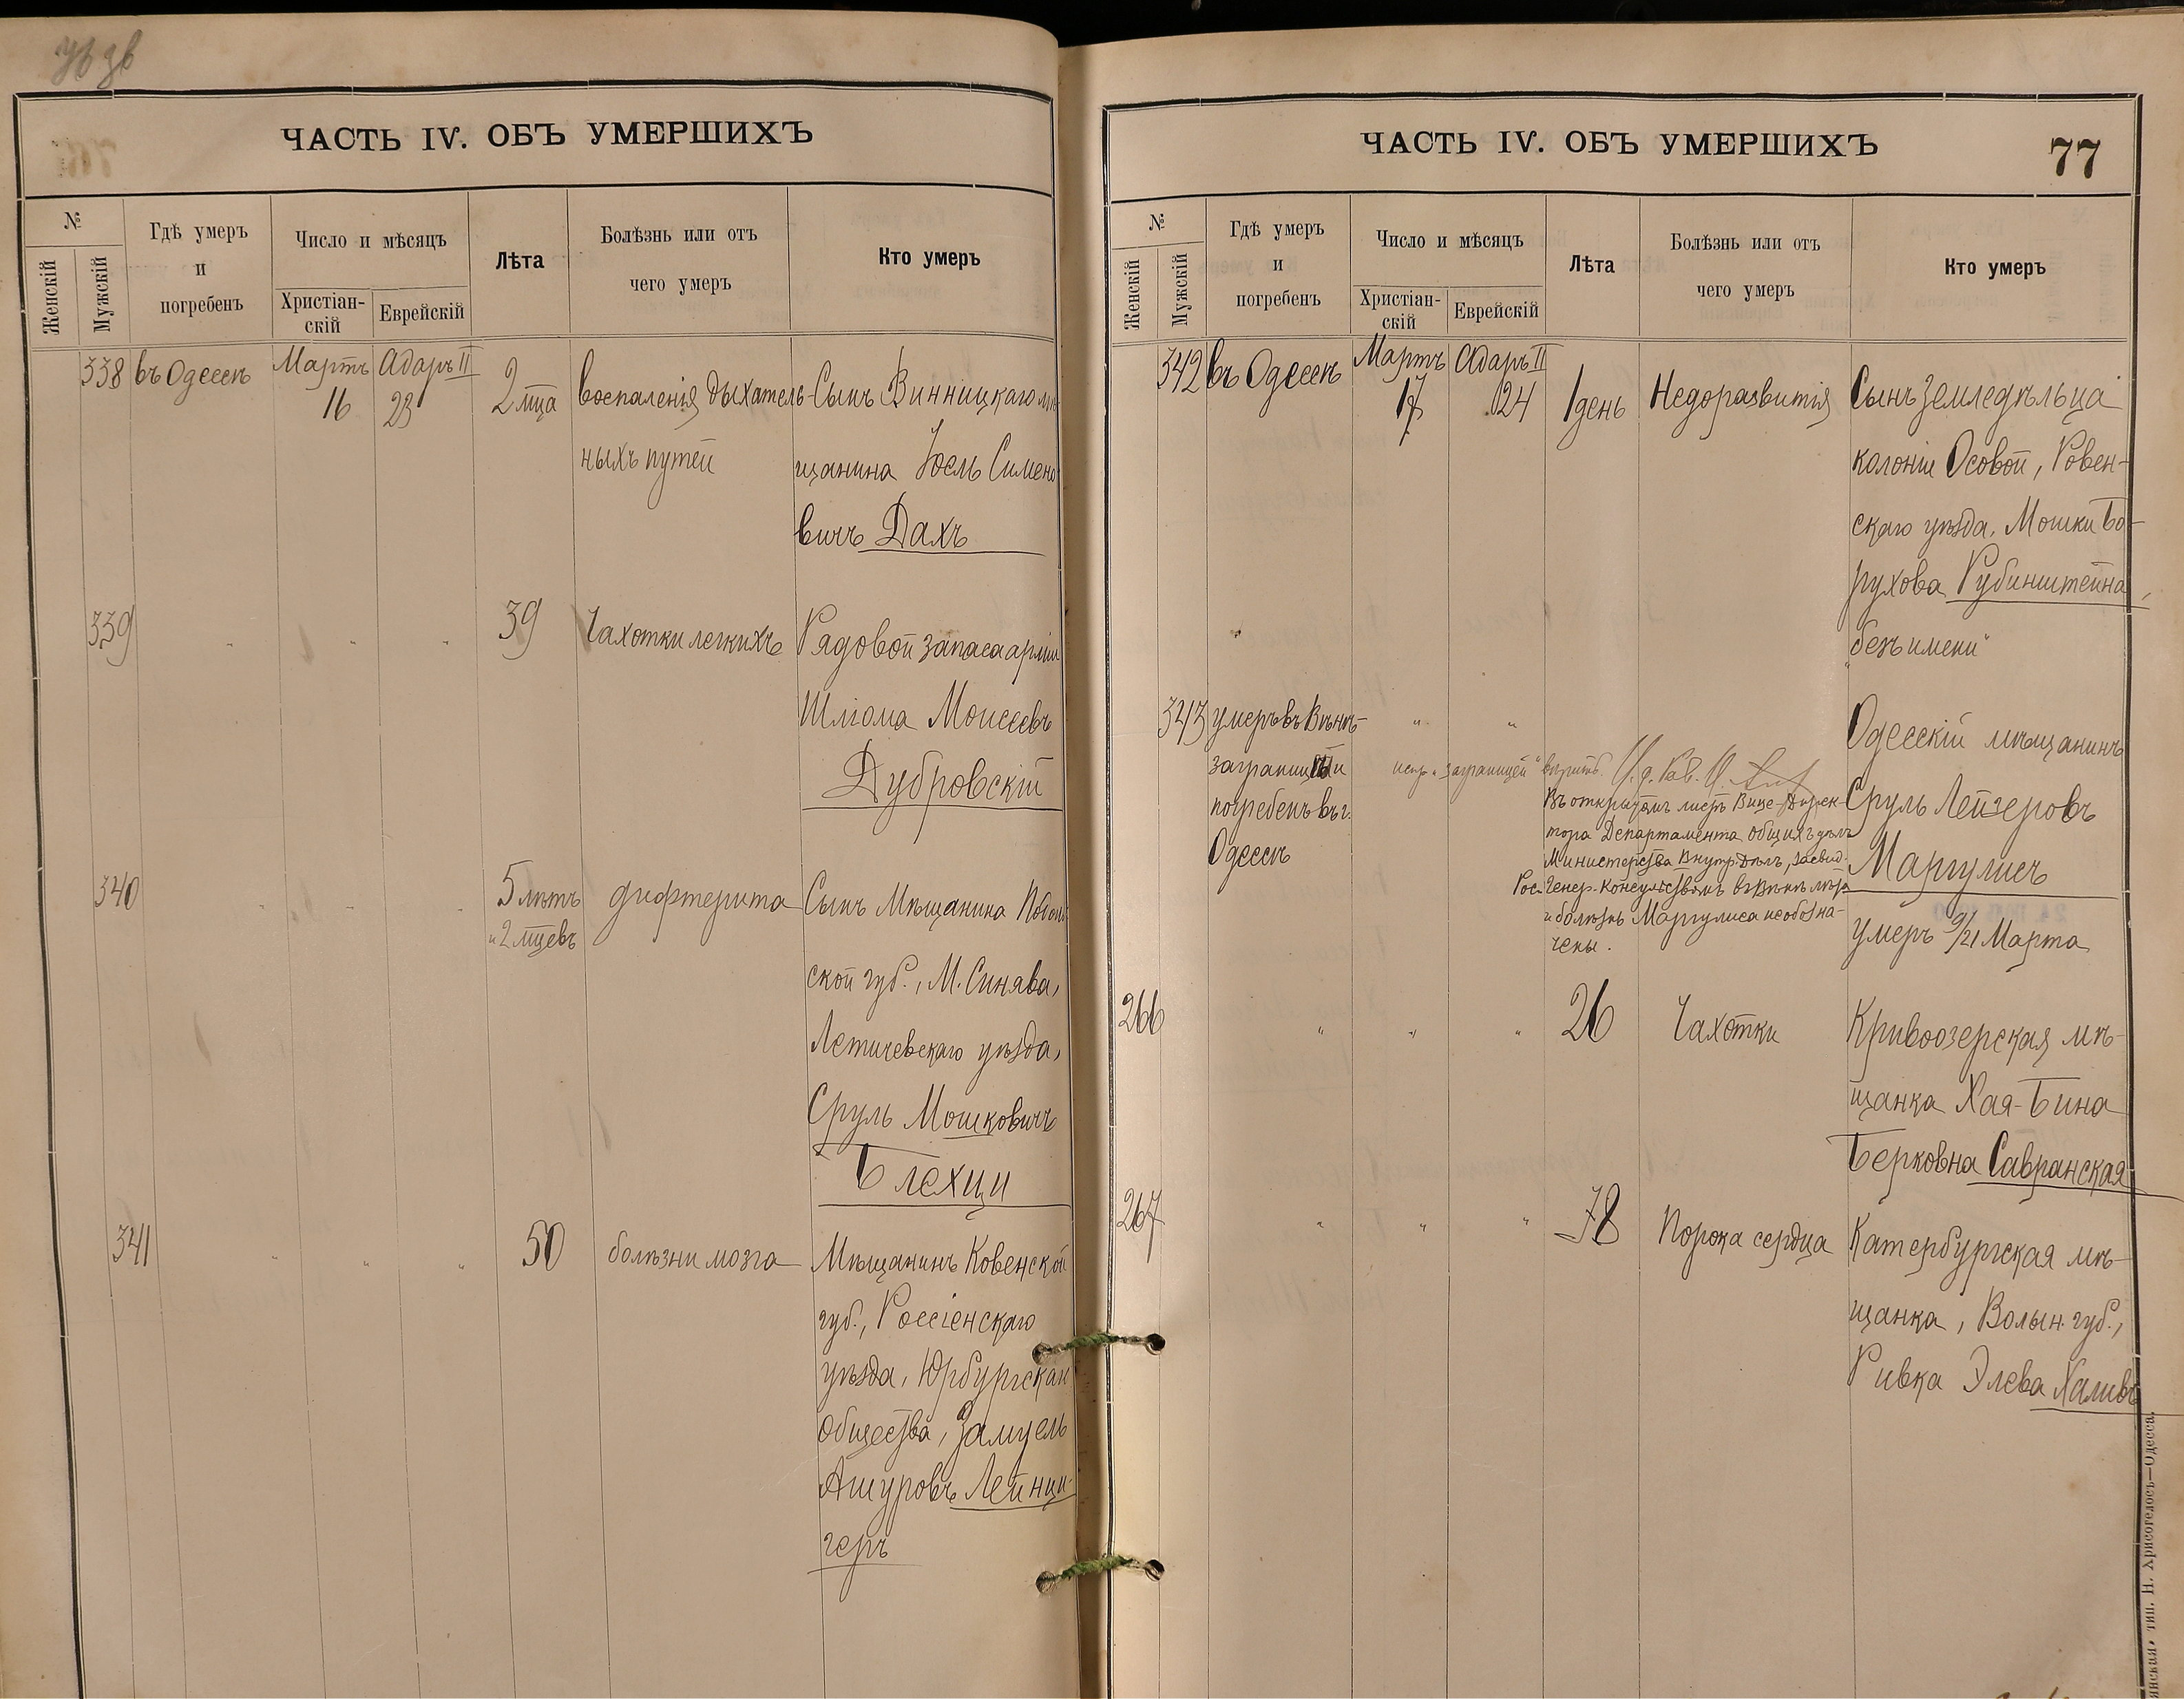 ЧАСТЬ IV. ОБЪ УМЕРШИХЪ
№
Женскій
Мужскій
Гдѣ умеръ
и
погребенъ
Число и мѣсяцъ
Христіан-
скій
Еврейскій
Лѣта
Болѣзнь или отъ
чего умеръ
Кто умеръ
338 въ Одессѣ Мартъ 16 Адаръ II 23 2 мца воспаленія дыхатель-
ныхъ путей
Сынъ Винницкаго мѣ-
щанина Іосль Симено
вичъ Дахъ
339 " " " 39 Чахотки легкихъ Рядовой запаса арміи
Шліома Моисеевъ
Дубровскій
340 " " " 5 лѣтъ
и 2 мцевъ
дифтерита
Сынъ Мѣщанина Подоль
ской губ., М. Синява,
Летичевскаго уѣзда,
Сруль Мошковичъ
Блехци
341 " " " 50 болѣзни мозга Мѣщанинъ Ковенской
губ., Россіенскаго
уѣзда, Юрбургскаго
общества, Замуель
Ашуровъ Лейнци-
геръ
ЧАСТЬ IV. ОБЪ УМЕРШИХЪ
77
№
Женскій
Мужскій
Гдѣ умеръ
и
погребенъ
Число и мѣсяцъ
Христіан-
скій
Еврейскій
Лѣта
Болѣзнь или отъ
чего умеръ
Кто умеръ
342 въ Одессѣ Мартъ 17 Адаръ II 24 1 день Недоразвитія Сынъ земледѣльца
колоніи Осовой, Ровен-
скаго уѣзда, Мошки Бо-
рухова Рубинштейна,
"безъ имени"
343 умеръ въ Вѣнѣ-
заграницей и
погребенъ въ г.
Одессѣ
" "
испр. "заграницей" вѣрить. И. д. Рав.
Въ открытомъ листѣ Вице-Дирек-
тора Департамента общихъ дѣлъ
Министерства Внутр. Дѣлъ, засвид.
Рос. Генер. Консульствомъ въ Вѣнѣ лѣта
и болѣзнь Маргулиса необозна-
чены.
Одесскій мѣщанинъ
Сруль Лейзеровъ
Маргулисъ
умеръ 9/21 Марта
266 " " " 26 Чахотки Кривоозерская мѣ-
щанка Хая-Бина
Берковна Савранская
267 " " " 78 Порока сердца Катербургская мѣ-
щанка, Волын. губ.,
Ривка Элева Халивъ
тип. Н. Хрисогелосъ—Одесса.